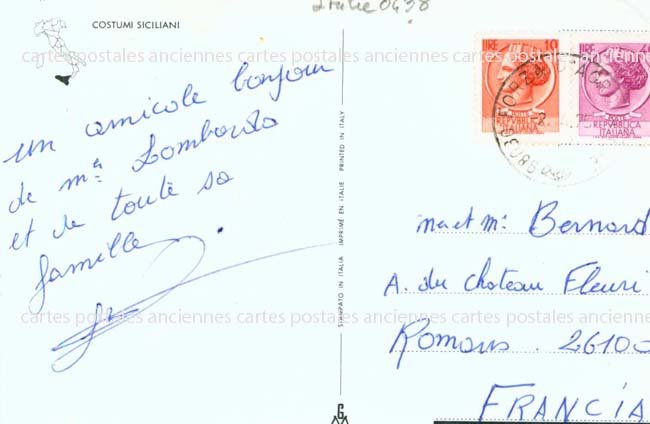 Italie 0438
COSTUMI SICILIANI
cartes postales anciennes cartes postales anciennes cartes postales anciennes
un amicale bonjour
de ma Lombardo
et de toute sa
famille
STAMPATO IN ITALIA IMPRIMÉ EN ITALIE PRINTED IN ITALY
LIRE 10
POSTE
REPVBBLICA
ITALIANA
LIRE
REPVBBLICA
ITALIANA
me et Mr Bernard
A. du chateau Fleuri
Romans. 26100
FRANCIA
cartes postales anciennes cartes postales anciennes cartes postales anciennes
G